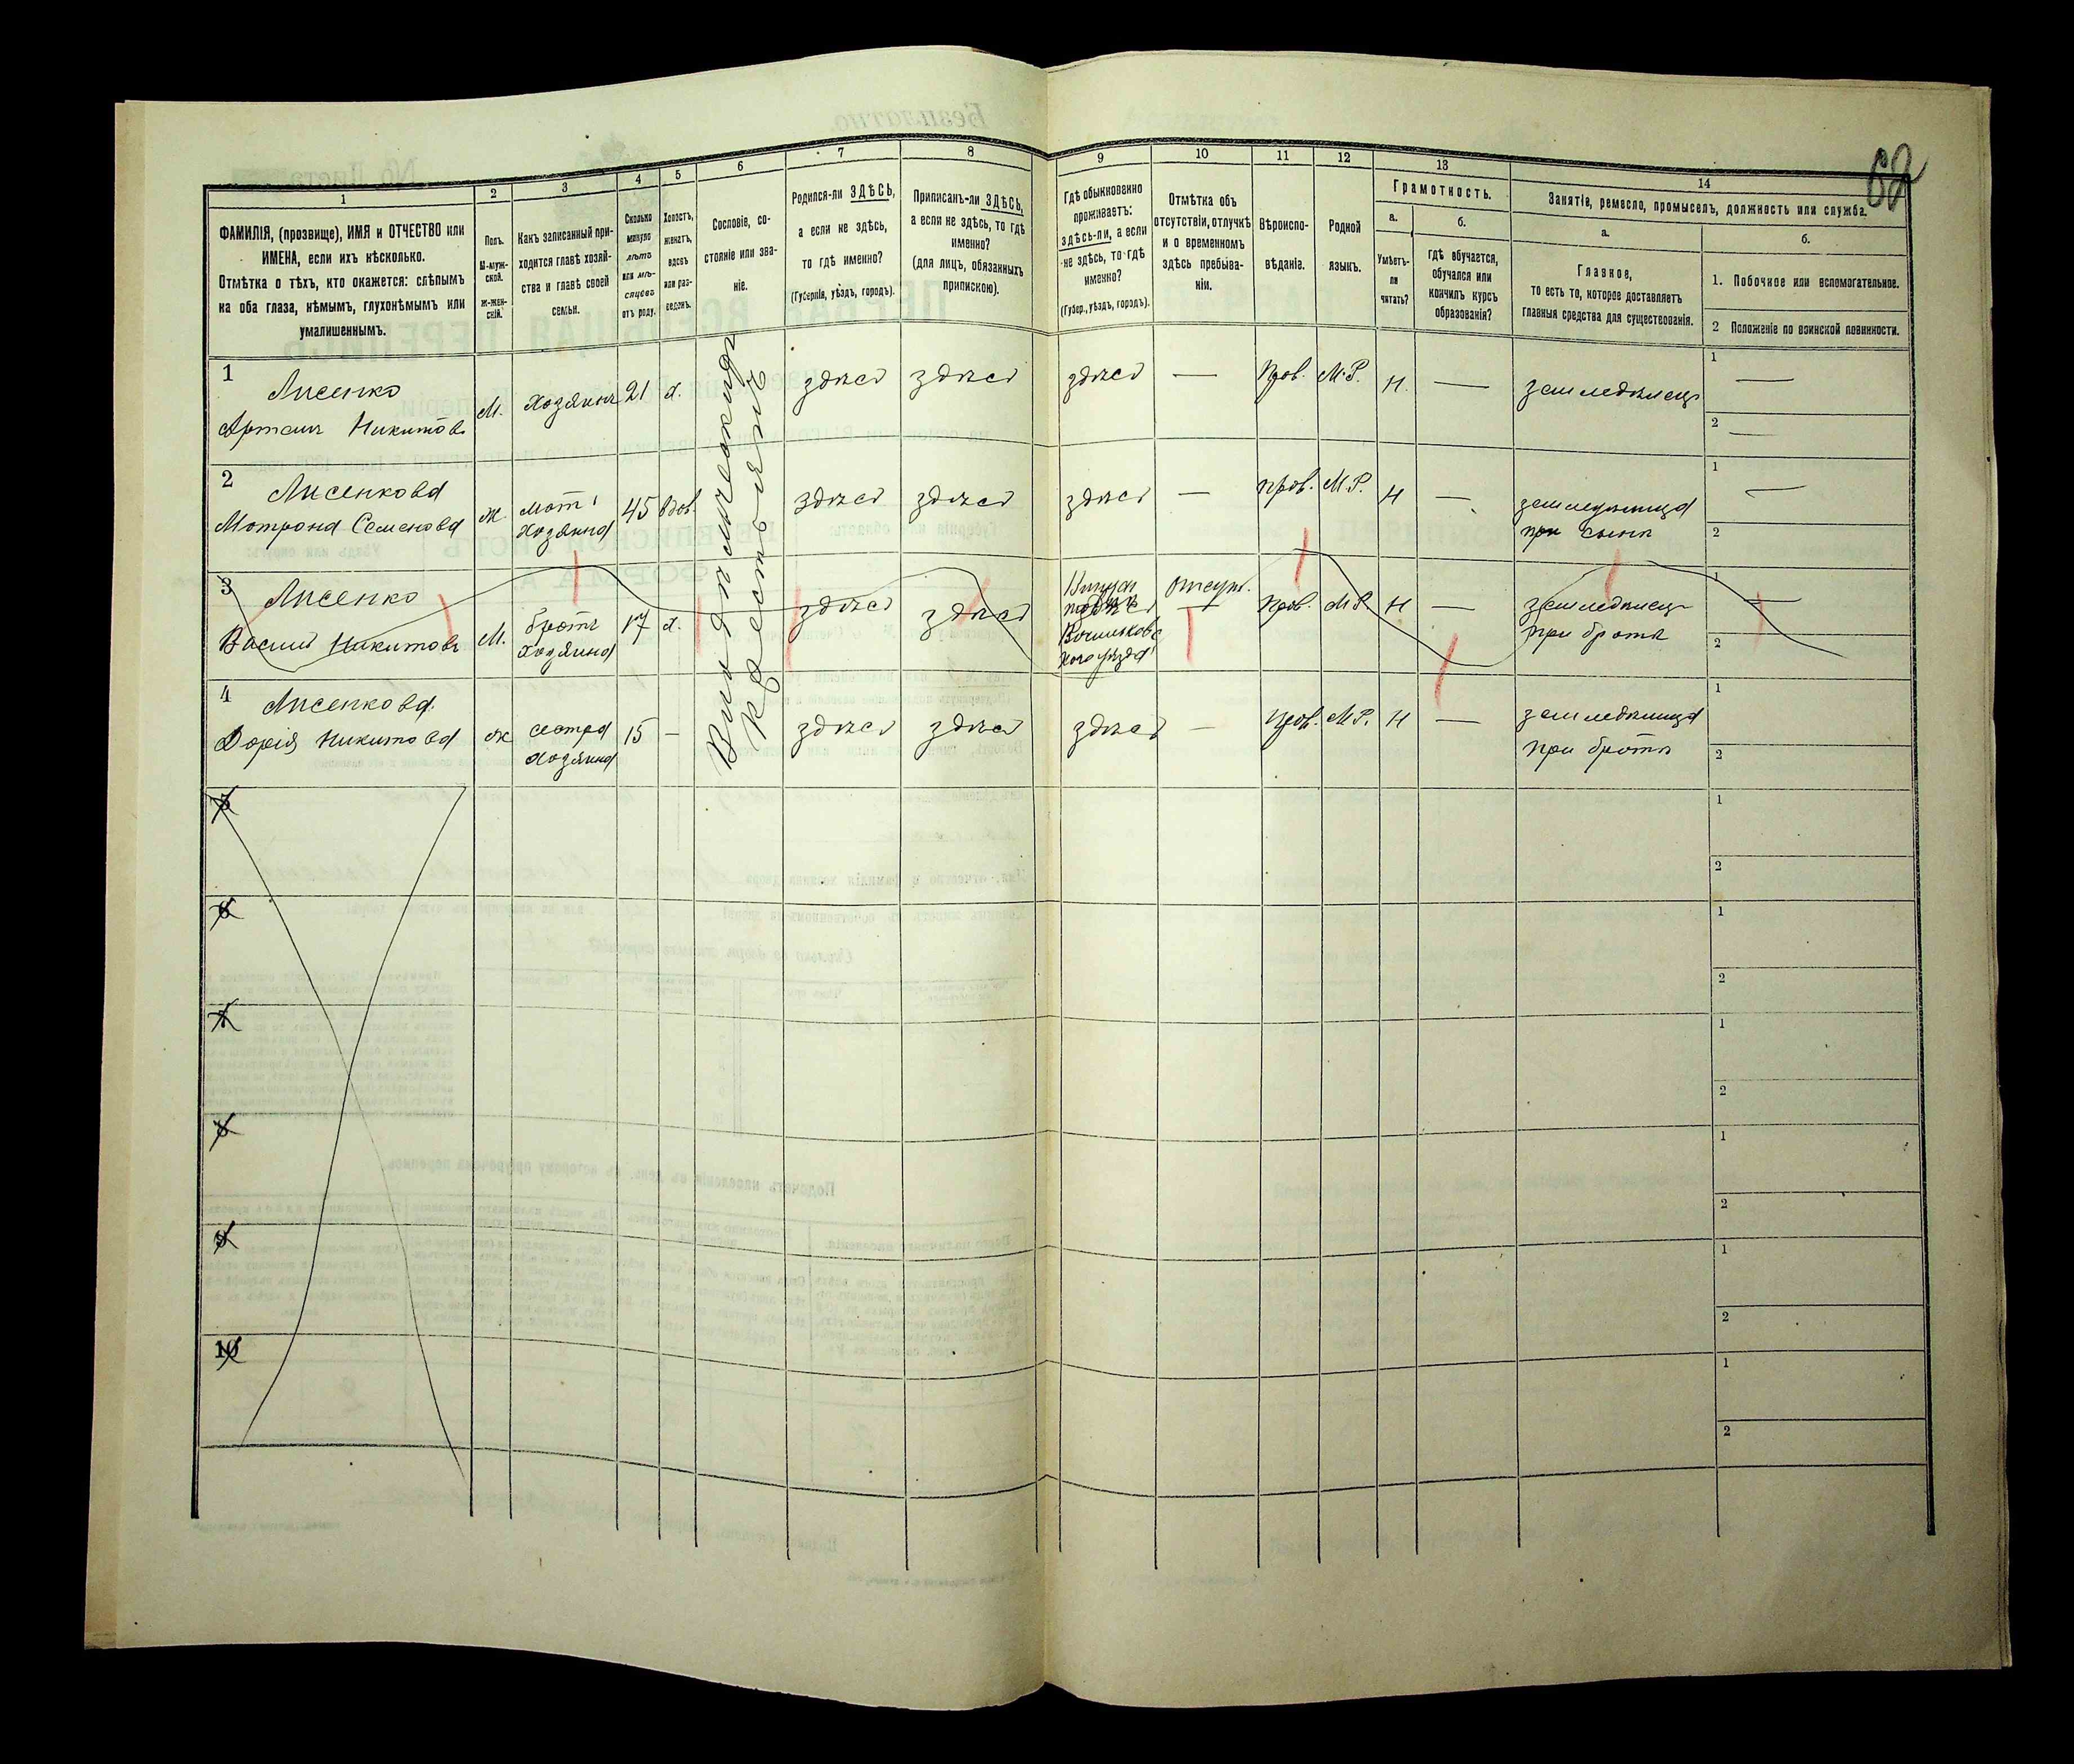 68
1
ФАМИЛІЯ, (прозвище), ИМЯ и ОТЧЕСТВО или
ИМЕНА, если ихъ нѣсколько.
Отмѣтка о тѣхъ, кто окажется: слѣпымъ
на оба глаза, нѣмымъ, глухонѣмымъ или
умалишеннымъ.
2
Полъ.
М-муж-
ской.
Ж-жен-
скій.
3
Какъ записанный при-
ходится главѣ хозяй-
ства и главѣ своей
семьи.
4
Сколько
минуло
лѣтъ
или мѣ-
сяцевъ
отъ роду.
5
Холостъ,
женатъ,
вдовъ
или раз-
веденъ.
6
Сословіе, со-
стояніе или зва-
ніе.
7
Родился-ли ЗДѢСЬ,
а если не здѣсь,
то гдѣ именно?
(Губернія, уѣздъ, городъ).
8
Приписанъ-ли ЗДѢСЬ,
а если не здѣсь, то гдѣ
именно?
(для лицъ, обязанныхъ
припискою).
9
Гдѣ обыкновенно
проживаетъ:
здѣсь-ли, а если
не здѣсь, то гдѣ
именно?
(Губер., уѣздъ, городъ).
10
Отмѣтка объ
отсутствіи, отлучкѣ
и о временномъ
здѣсь пребыва-
ніи.
11
Вѣроиспо-
вѣданіе.
12
Родной
языкъ.
13
Грамотность.
а.
Умѣетъ-
ли
читать?
б.
Гдѣ обучается,
обучался или
кончилъ курсъ
образованія?
14
Занятіе, ремесло, промыселъ, должность или служба.
а.
Главное,
то есть то, которое доставляетъ
главныя средства для существованія.
б.
1. Побочное или вспомогательное.
2 Положеніе по воинской повинности.
1
Лисенко
Артемъ Никитовъ
М.
Хозяинъ
21
х.
здѣсь
здѣсь
здѣсь
—
Прав.
М.Р.
Н.
—
земледѣлецъ
1 —
2 —
2
Лисенкова
Мотрона Семенова
ж.
мать
Хозяина
45
вдов.
здѣсь
здѣсь
здѣсь
—
прав.
М.Р.
Н
—
при сынѣ
1 —
2
3
Лисенко
Василій Никитовъ
М.
братъ
Хозяина
17
х.
здѣсь
здѣсь
отсут.
—
Прав.
М.Р.
Н
—
земледѣлецъ
при братѣ
1 —
2
4
Лисенкова
Дарія Никитова
ж
сестра
Хозяина
15
—
здѣсь
здѣсь
здѣсь
—
прав.
М.Р.
Н
—
при братѣ
1
2
Крестьянинъ
5
1
2
6
1
2
7
1
2
8
1
2
9
1
2
10
1
2